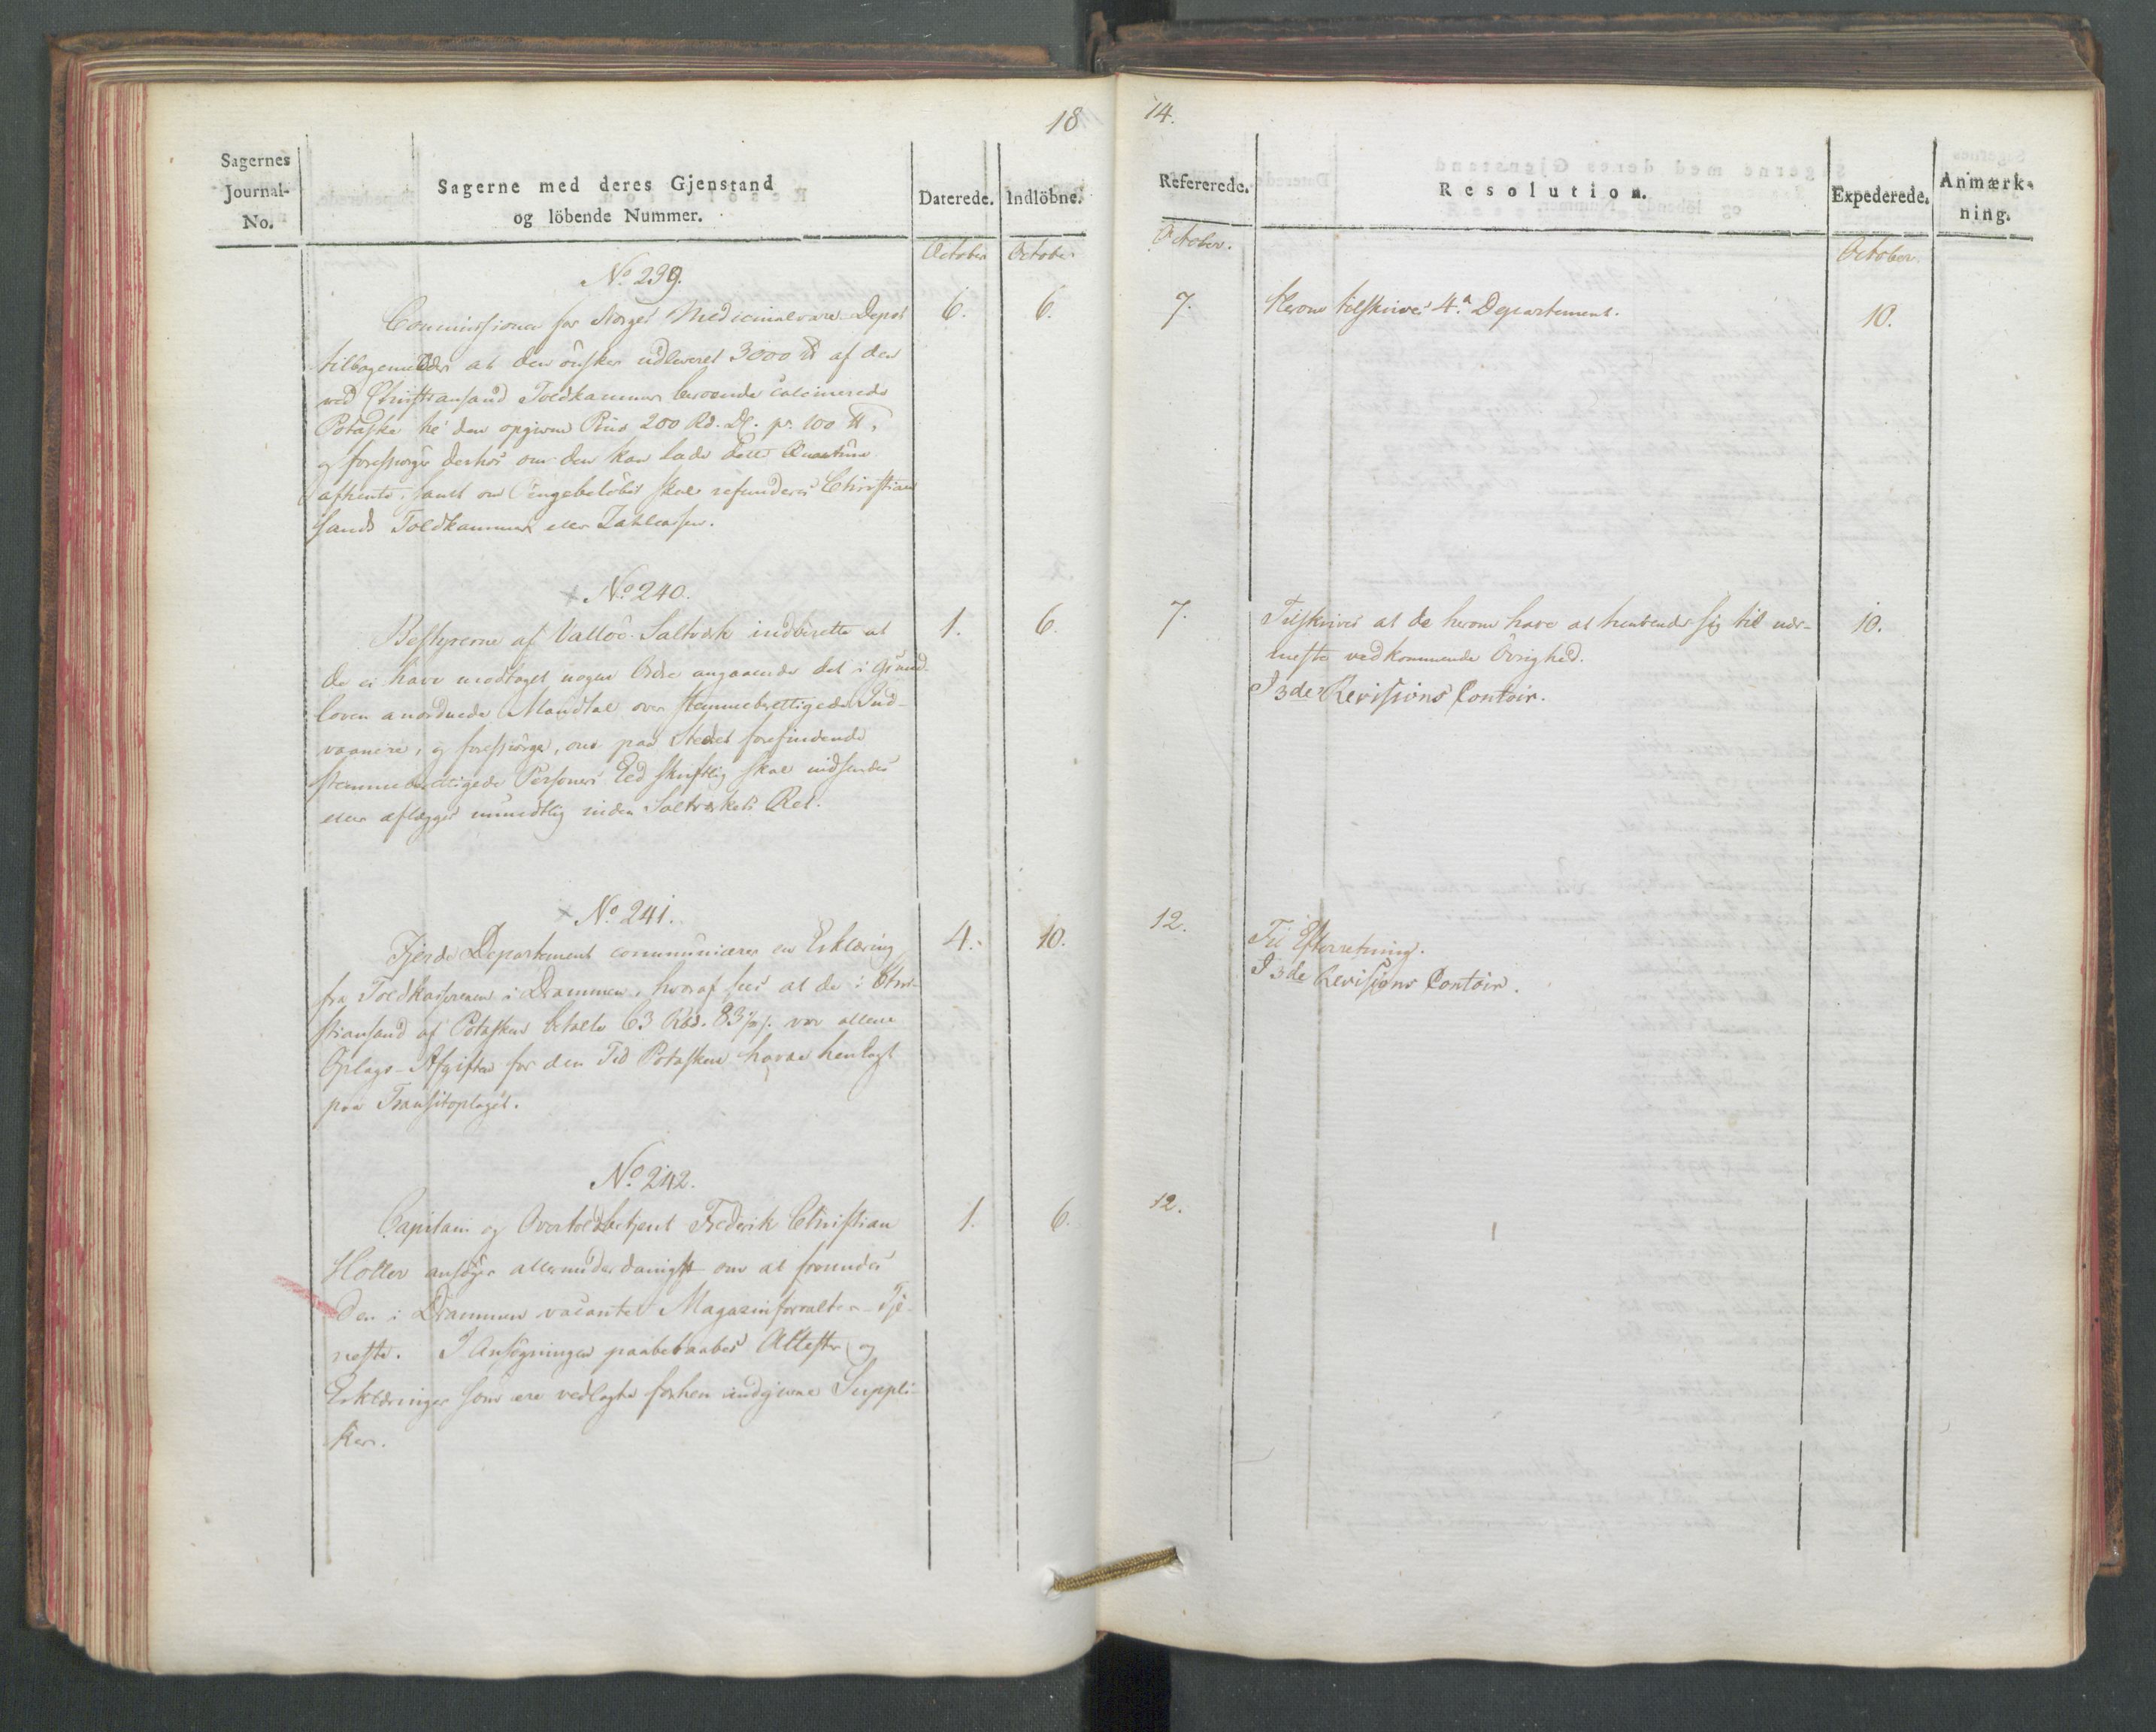 18
14.
Sagernes
Journal-
No.
Sagerne med deres Gjenstand
og löbende Nummer.
Daterede.
Indlöbne.
Refererede.
Resolution.
Expederede.
Anmærk-
ning.
October
October
October.
October.
No 239.
Commissionen for Norges Medicinalvare-Depot
tilbagemelder at den önsker udleveret 3000 ℔ af den
ved Christiansand Toldkammer beroende calcinerede
Potaske for den opgivne Priis 200 Rd. pr. 100 ℔,
og forespörger derhos om den kan lade dette Qvantum
afhente, samt om Pengebelöbet skal refunderes Christian
sands Toldkammer eller Zahlcassen.
6.
6.
7.
Herom tilskrives 4. Departement.
10.
No 240.
Bestyrerne af Valloö Saltværk indberette at
de ei have modtaget nogen Ordre angaaende det i Grund
loven anordnede Mandtal over stemmeberettigede Ind-
vaanere, og forespörge, om paa Stedet forefindende
stemmeberettigede Personers Eed skriftlig skal indsendes
eller aflægges mundtlig inden Saltværkets Ret.
1.
6.
7.
Tilskrives at de herom have at henvende sig til nær-
meste vedkommende Övrighed.
I 3de Revisions Contoir.
10.
No 241.
Fjerde Departement communicerer en Erklæring
fra Toldkassereren i Drammen, hvoraf sees at de i Chri-
stiansand af Potasken betalte 63 Rbd. 83 s. var allene
Oplags-Afgiften for den Tid Potasken havde henlagt
paa Transitoplaget.
4.
10.
12.
Til Efterretning.
I 3de Revisions Contoir.
No 242.
Capitain og Overtoldbetjent Frederik Christian
Holler ansöger allerunderdanigst om at forundes
den i Drammen vacante Magazinforvalter-Tje-
neste. I Ansögningen paaberaabes Attester og
Erklæringer som ere vedlagte forhen indgivne Suppli-
ker.
1.
6.
12.